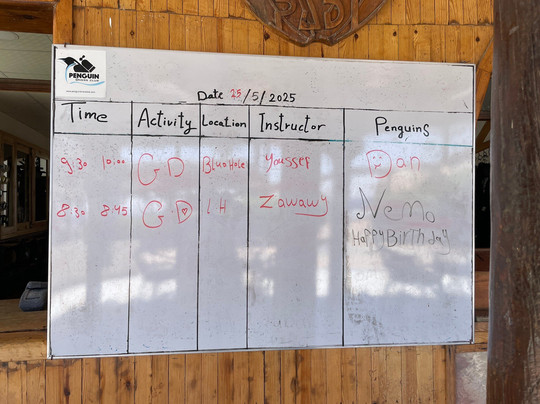 PENGUIN
Date 25/5/2025
Time Activity Location Instructor Penguins
9:30 10:00 G D Blue Hole Youssef Dan
8:30 8:45 G.D L H Zawawy Nemo
Happy Birthday